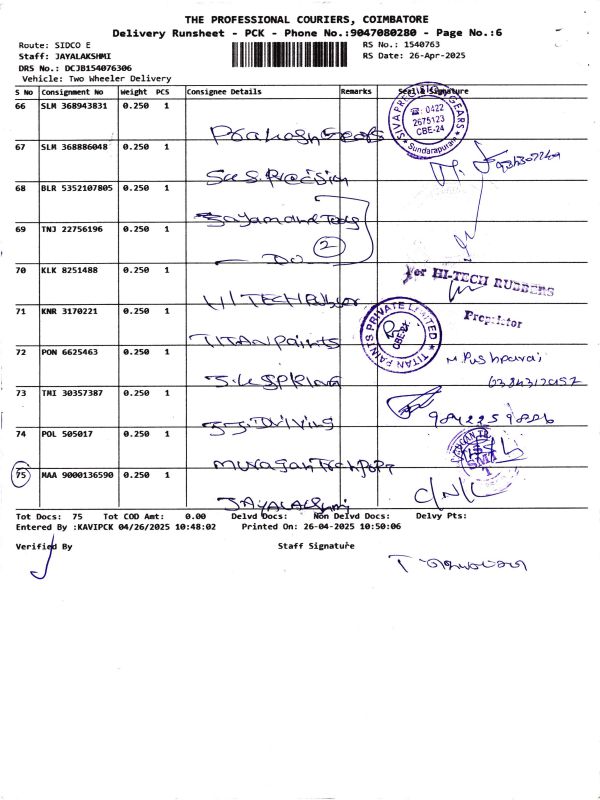 THE PROFESSIONAL COURIERS, COIMBATORE
Delivery Runsheet - PCK - Phone No.:9047080280 - Page No.:6
Route: SIDCO E
RS No.: 1540763
Staff: JAYALAKSHMI
RS Date: 26-Apr-2025
DRS No.: DCJB154076306
Vehicle: Two Wheeler Delivery
S No Consignment No Weight PCS Consignee Details Remarks Seal & Signature
66 SLM 368943831 0.250 1
Prakash Gears
SIVA PRECISION GEARS
☎: 0422
2675123
CBE-24
Sundarapuram
67 SLM 368886048 0.250 1
Sri S. Precision
68 BLR 5352107805 0.250 1
69 TNJ 22756196 0.250 1
2
Do
70 KLK 8251488 0.250 1
HI TECH Rubber
For HI-TECH RUBBERS
Proprietor
71 KNR 3170221 0.250 1
TITAN Paints
TITAN PAINTS PRIVATE LIMITED
CBE-24
72 PON 6625463 0.250 1
M. Pushparaj
73 TMI 30357387 0.250 1
74 POL 505017 0.250 1
Murugan
75 MAA 9000136590 0.250 1
JAYALAKSHMI
Tot Docs: 75 Tot COD Amt: 0.00 Delvd Docs: Non Delvd Docs: Delvy Pts:
Entered By :KAVIPCK 04/26/2025 10:48:02 Printed On: 26-04-2025 10:50:06
Verified By Staff Signature